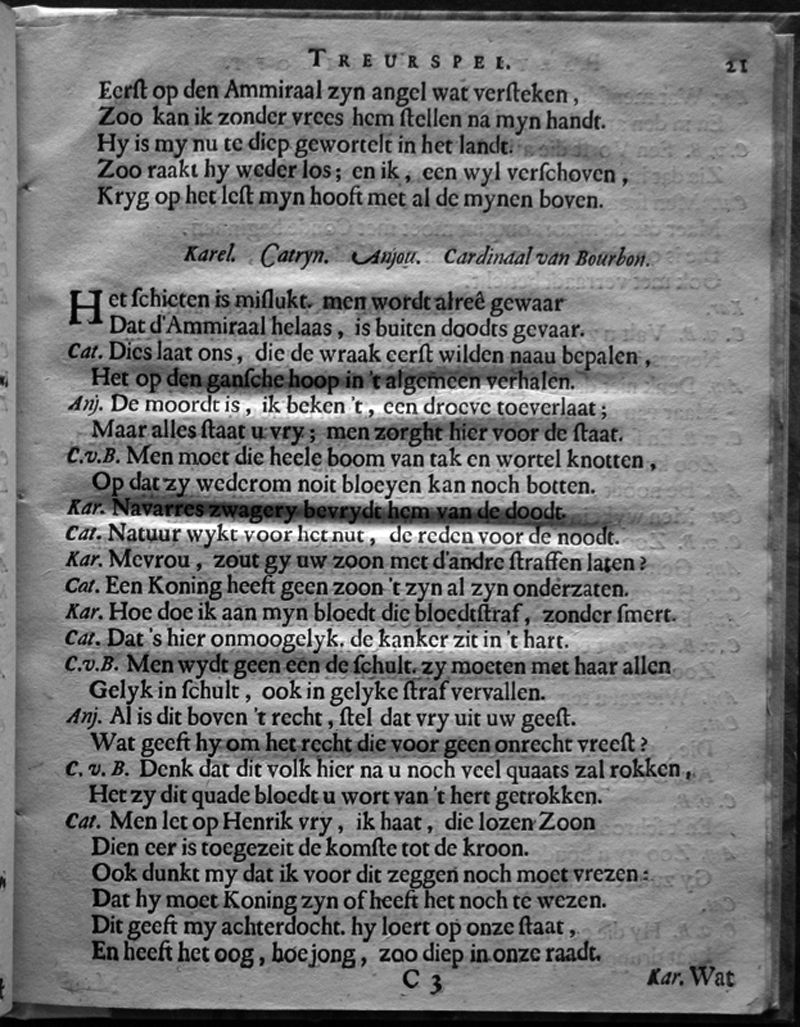 TREURSPEL. 21
Eerſt op den Ammiraal zyn angel wat verſteken,
Zoo kan ik zonder vrees hem ſtellen na myn handt.
Hy is my nu te diep gewortelt in het landt.
Zoo raakt hy weder los; en ik, een wyl verſchoven,
Kryg op het leſt myn hooft met al de mynen boven.
Karel. Catryn. Anjou. Cardinaal van Bourbon.
Het ſchieten is miſlukt. men wordt alreê gewaar
Dat d'Ammiraal helaas, is buiten doodts gevaar.
Cat. Dies laat ons, die de wraak eerſt wilden naau bepalen,
Het op den ganſche hoop in 't algemeen verhalen.
Anj. De moordt is, ik beken 't, een droeve toeverlaat;
Maar alles ſtaat u vry; men zorght hier voor de ſtaat.
C.v.B. Men moet die heele boom van tak en wortel knotten,
Op dat zy wederom noit bloeyen kan noch botten.
Kar. Navarres zwagery bevrydt hem van de doodt.
Cat. Natuur wykt voor het nut, de reden voor de noodt.
Kar. Mevrou, zout gy uw zoon met d'andre ſtraffen laten?
Cat. Een Koning heeft geen zoon 't zyn al zyn onderzaten.
Kar. Hoe doe ik aan myn bloedt die bloedtſtraf, zonder ſmert.
Cat. Dat 's hier onmoogelyk. de kanker zit in 't hart.
C.v.B. Men wydt geen een de ſchult. zy moeten met haar allen
Gelyk in ſchult, ook in gelyke ſtraf vervallen.
Anj. Al is dit boven 't recht, ſtel dat vry uit uw geeſt.
Wat geeft hy om het recht die voor geen onrecht vreeſt?
C. v. B. Denk dat dit volk hier na u noch veel quaats zal rokken,
Het zy dit quade bloedt u wort van 't hert getrokken.
Cat. Men let op Henrik vry, ik haat, die lozen Zoon
Dien eer is toegezeit de komſte tot de kroon.
Ook dunkt my dat ik voor dit zeggen noch moet vrezen:
Dat hy moet Koning zyn of heeft het noch te wezen.
Dit geeft my achterdocht. hy loert op onze ſtaat,
En heeft het oog, hoe jong, zoo diep in onze raadt.
C 3 Kar. Wat